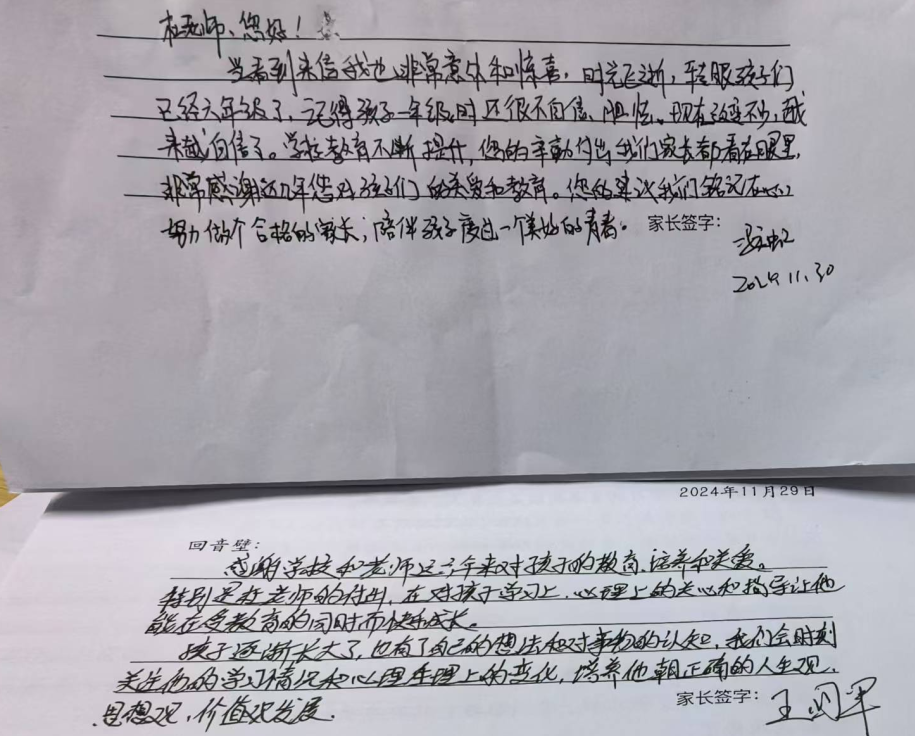 杜老师、您好!
当看到来信我也非常意外和惊喜,时光飞逝,转眼孩子们
已经六年级了,记得孩子一年级时还很不自信、胆怯。现在改变不少,越
来越自信了。学校教育不断提升,您的辛勤付出我们家长都看在眼里,
非常感谢这几年您对孩子们的关爱和教育。您的建议我们铭记在心
努力做个合格的家长;陪伴孩子度过一个美好的青春。 家长签字:
2024.11.30
2024年11月29日
回音壁:
感谢学校和老师这六年来对孩子的教育、培养和关爱。
特别是杜老师的付出,在对孩子学习上、心理上的关心和指导让他
能在受教育的同时而快乐成长。
孩子逐渐长大了,也有了自己的想法和对事物的认知,我们会时刻
关注他的学习情况和心理生理上的变化,培养他朝正确的人生观、
思想观、价值观发展。
家长签字: 王